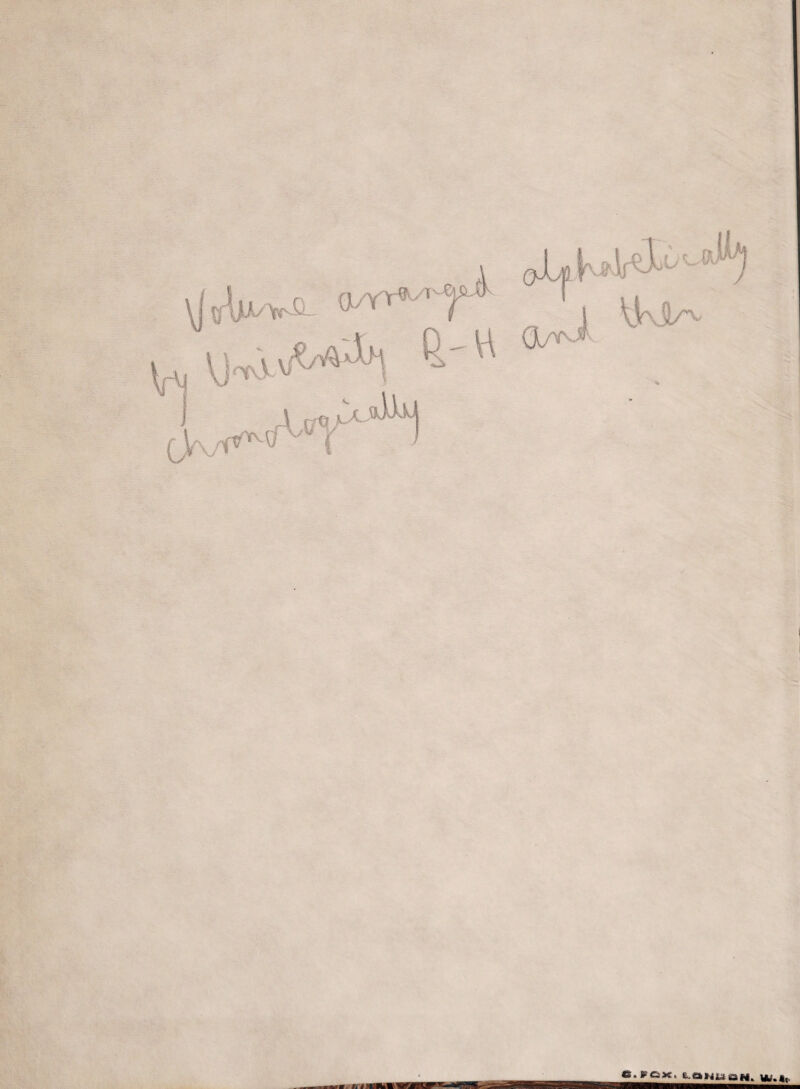 Volume arranged alphabetically
by University B-H and then
chronologically
C. FOX. LONDON. W.1.